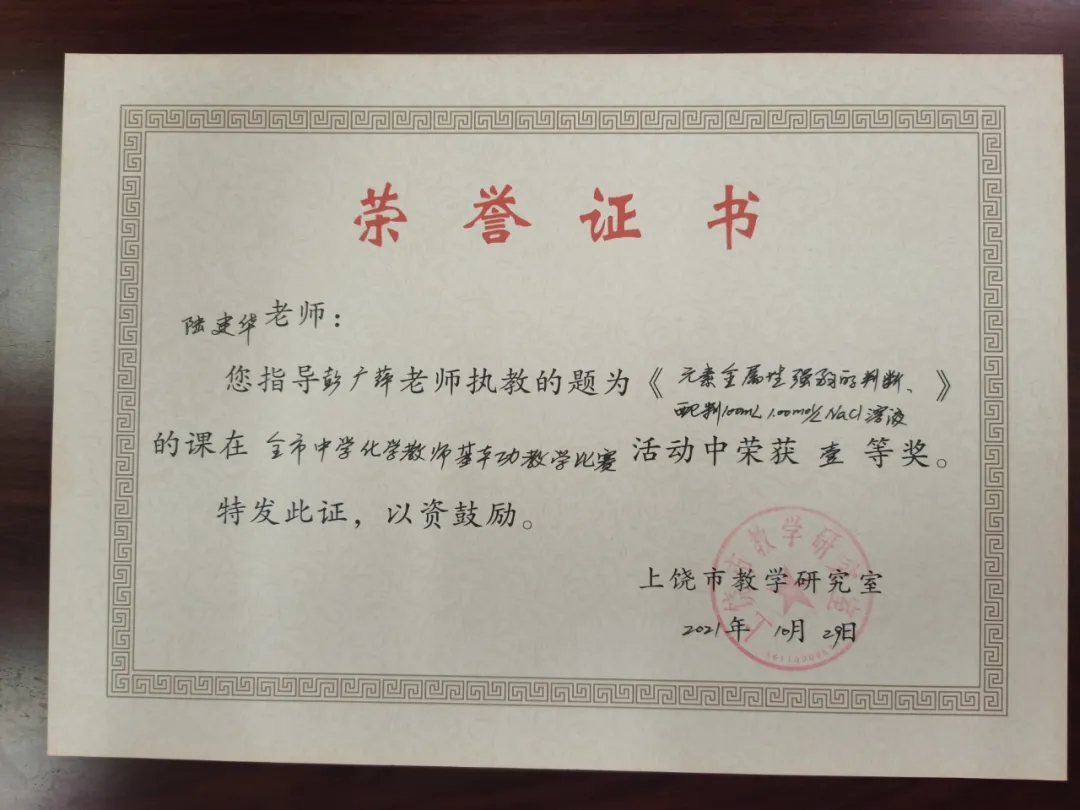 荣誉证书
陆建华老师：
您指导彭广萍老师执教的题为《元素金属性强弱的判断、
配制100mL 1.00mol/L NaCl溶液》
的课在全市中学化学教师基本功教学比赛活动中荣获壹等奖。
特发此证，以资鼓励。
上饶市教学研究室
2021年10月29日
上饶市教学研究室